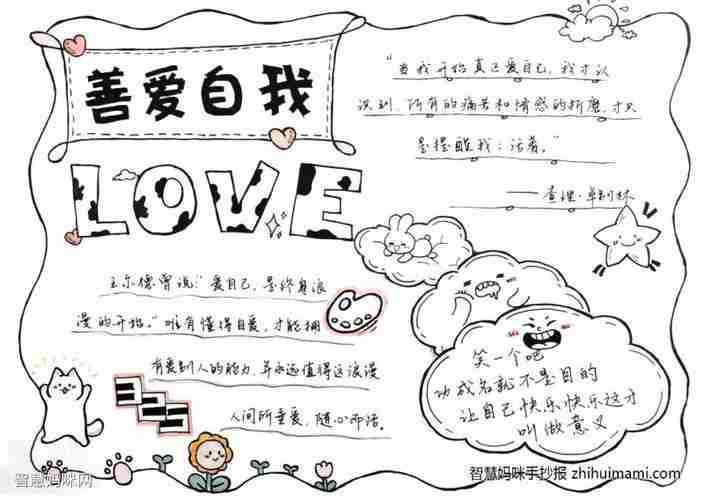 善爱自我
LOVE
“当我开始真正爱自己，我才认
识到，所有的痛苦和情感的折磨，才只
是提醒我：活着。”
——查理·卓别林
王尔德曾说：“爱自己，是终身浪
漫的开始。”唯有懂得自爱，才能拥
有爱别人的能力，并永远值得这浪漫
人间所重爱，随心邓语。
笑一个吧
功成名就不是目的
让自己快乐快乐这才
叫做意义
智慧妈咪网
智慧妈咪手抄报 zhihuimami.com